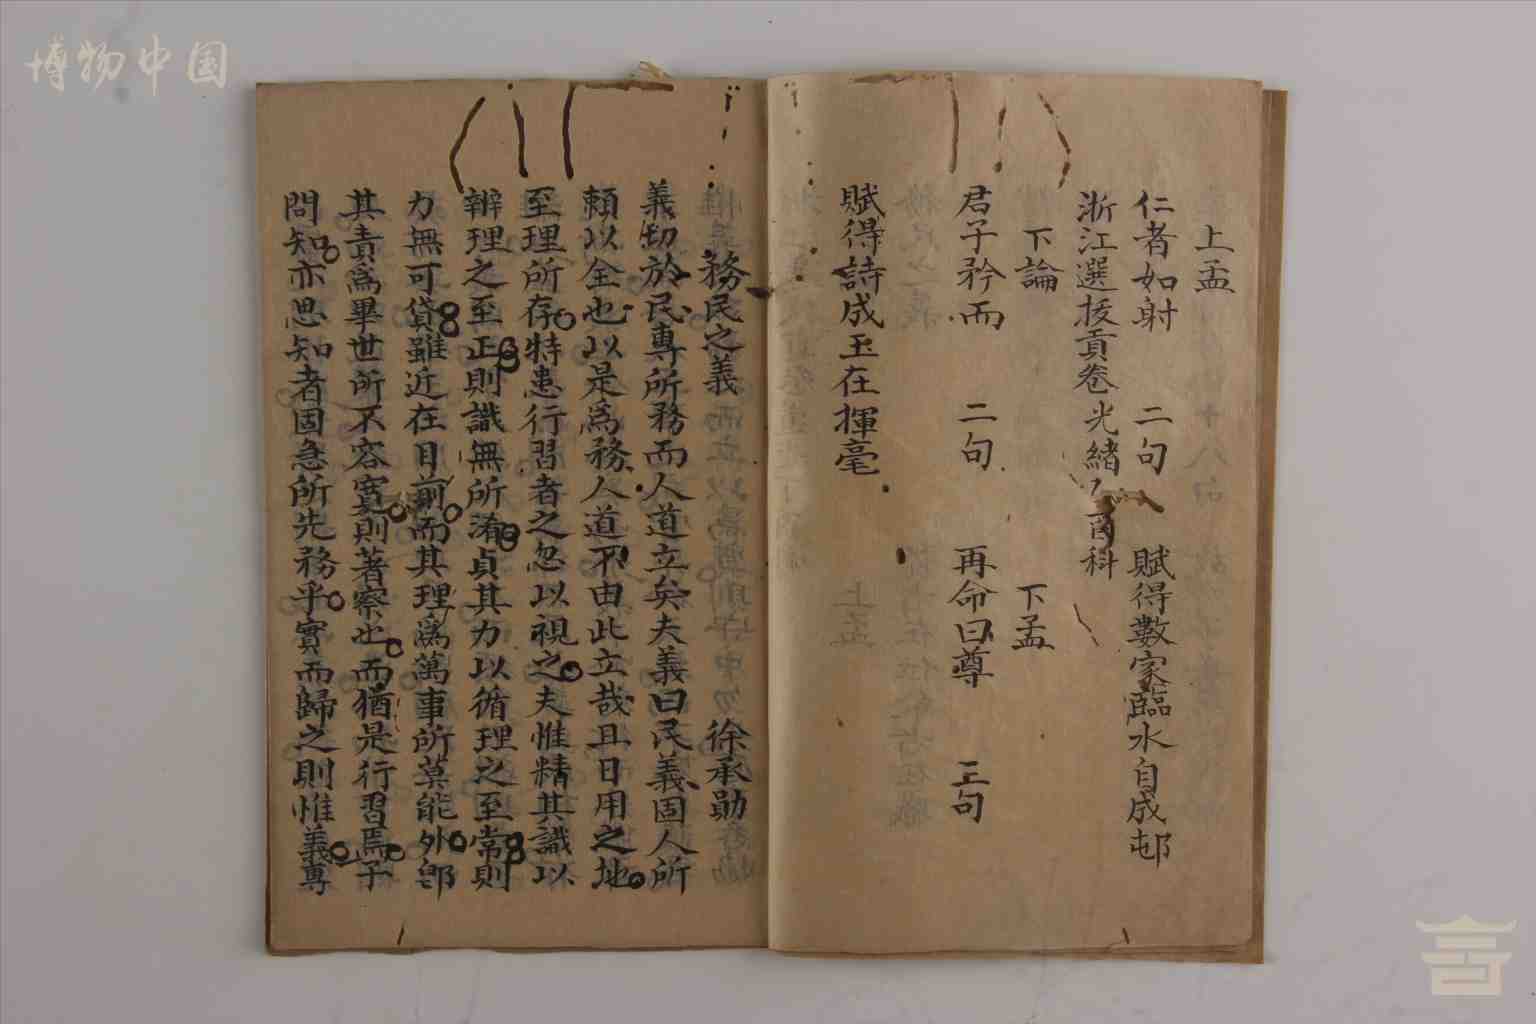 博物中国
上孟
仁者如射 二句 賦得數家臨水自成邨
浙江選拔貢卷光緒酉科
下論 下孟
君子矜而 二句 再命曰尊 三句
賦得詩成玉在揮毫
務民之義 徐承勛
義切於民專所務而人道立矣夫義曰民義固人所
賴以全也以是為務人道不由此立哉且日用之地
至理所存特患行習者之忽以視之夫惟精其識以
辨理之至正則識無所淆貞其力以循理之至常則
力無可貸雖近在目前而其理為萬事所莫能外郎
其責為畢世所不容寬則著察也而猶是行習焉子
問知亦思知者固急所先務乎實而歸之則惟義專